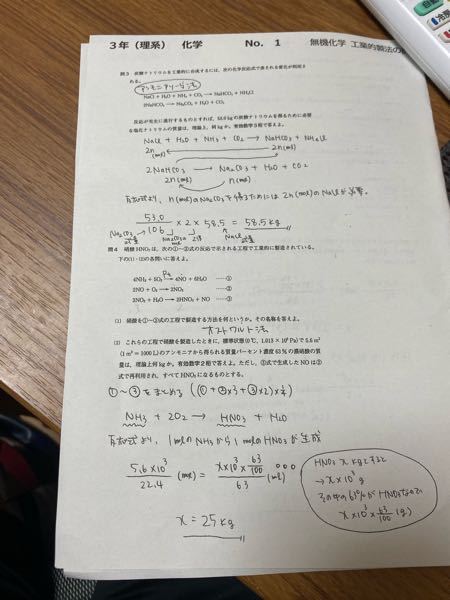 3年(理系) 化学 No. 1 無機化学 工業的製法の
問3 炭酸ナトリウムを工業的に合成するには、次の化学反応式で表される変化が利用される。
アンモニアソーダ法
NaCl + H₂O + NH₃ + CO₂ → NaHCO₃ + NH₄Cl
2NaHCO₃ → Na₂CO₃ + H₂O + CO₂
反応が完全に進行するものとすれば、53.0 kgの炭酸ナトリウムを得るために必要
な塩化ナトリウムの質量は、理論上、何kgか。有効数字3桁で答えよ。
NaCl + H₂O + NH₃ + CO₂ → NaHCO₃ + NH₄Cl
2n(mol) 2n(mol)
2NaHCO₃ → Na₂CO₃ + H₂O + CO₂
2n(mol) n(mol)
反応式より、n(mol)のNa₂CO₃を得るためには2n(mol)のNaClが必要。
53.0/106 × 2 × 58.5 = 58.5 kg
Na₂CO₃ 式量 Na₂CO₃の mol 2倍 NaCl 式量
問4 硝酸 HNO₃は、次の①~③式の反応で示される工程で工業的に製造されている。
下の(1)・(2)の各問いに答えよ。
Pt
4NH₃ + 5O₂ → 4NO + 6H₂O ……①
2NO + O₂ → 2NO₂ ……②
3NO₂ + H₂O → 2HNO₃ + NO ……③
(1) 硝酸を①~③式の工程で製造する方法を何というか。その名称を答えよ。
オストワルト法
(2) これらの工程で硝酸を製造したときに、標準状態(0℃, 1.013 × 10⁵ Pa)で 5.6 m³
(1 m³=1000 L)のアンモニアから得られる質量パーセント濃度 63 %の濃硝酸の質
量は、理論上何kgか。有効数字2桁で答えよ。ただし、③式で生成したNOは②
式で再利用され、すべてHNO₃になるものとする。
①~③をまとめる (①+②×3+③×2)×1/4
NH₃ + 2O₂ → HNO₃ + H₂O
反応式より、1molのNH₃から1molのHNO₃が生成
5.6×10³/22.4 (mol) = x×10³×63/100/63 (mol)
HNO₃ x kgとすると
→ x×10³ g
その中の63%がHNO₃なので
x×10³×63/100 (g)
x = 25 kg